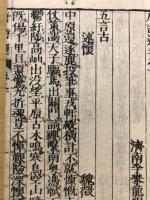 濟南李攀龍
五言古
述懷
魏徵
中原還逐鹿投筆事戎軒縱橫計不就慷慨
仗策謁天子驅馬出關門請纓繫南粵憑軾
鬱紆陟高岫出沒望平原古木鳴寒鳥空山啼
既傷千里目還驚九折魂豈不憚艱險深懷